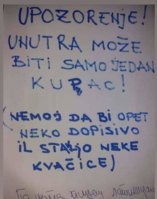 UPOZORENJE!
UNUTRA MOŽE
BITI SAMO JEDAN
KUPAC!
(NEMOJ DA BI OPET
NEKO DOPISIVO
IL STAVJO NEKE
KVAČICE)